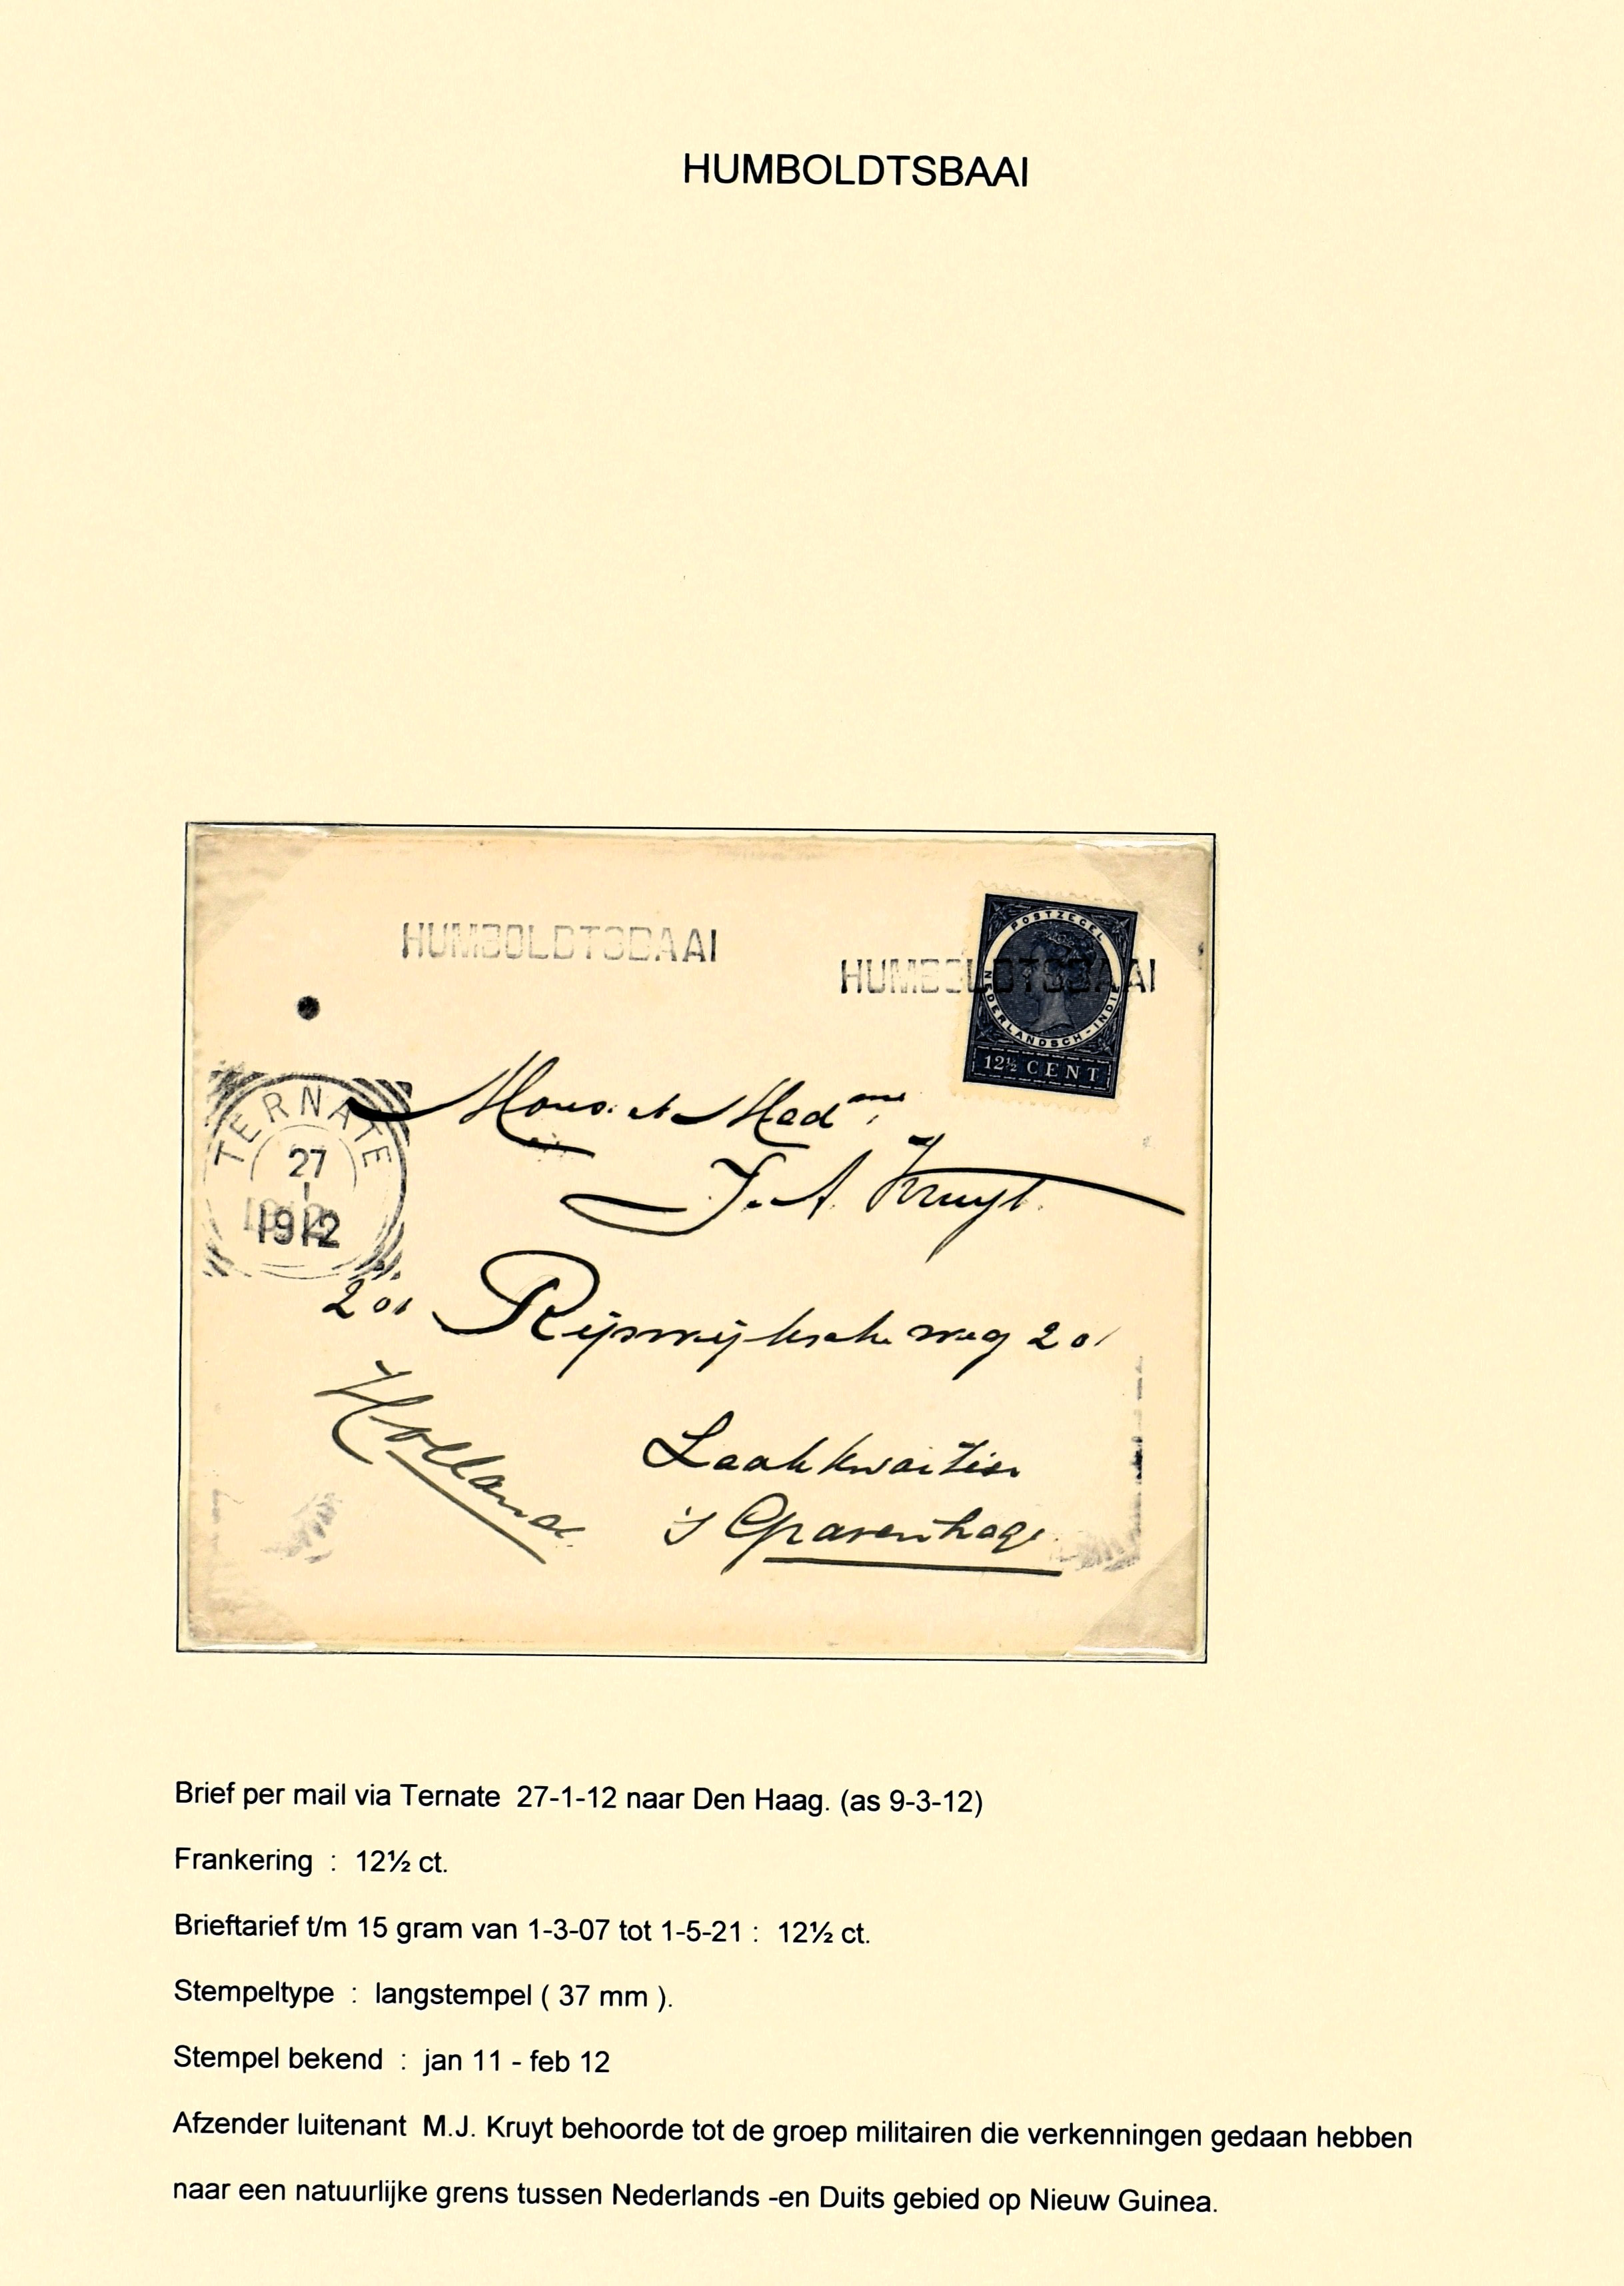 HUMBOLDTSBAAI
HUMBOLDTSBAAI
HUMBOLDTSBAAI
POSTZEGEL
NEDERLANDSCH-INDIE
12½ CENT
TERNATE
27
1
1912
Mons. et Mad me.
J. A. Kruyt.
201 Rijswijksche weg 201
Holland
Laakkwartier
's Gravenhage
Brief per mail via Ternate 27-1-12 naar Den Haag. (as 9-3-12)
Frankering : 12½ ct.
Brieftarief t/m 15 gram van 1-3-07 tot 1-5-21 : 12½ ct.
Stempeltype : langstempel ( 37 mm ).
Stempel bekend : jan 11 - feb 12
Afzender luitenant M.J. Kruyt behoorde tot de groep militairen die verkenningen gedaan hebben
naar een natuurlijke grens tussen Nederlands -en Duits gebied op Nieuw Guinea.